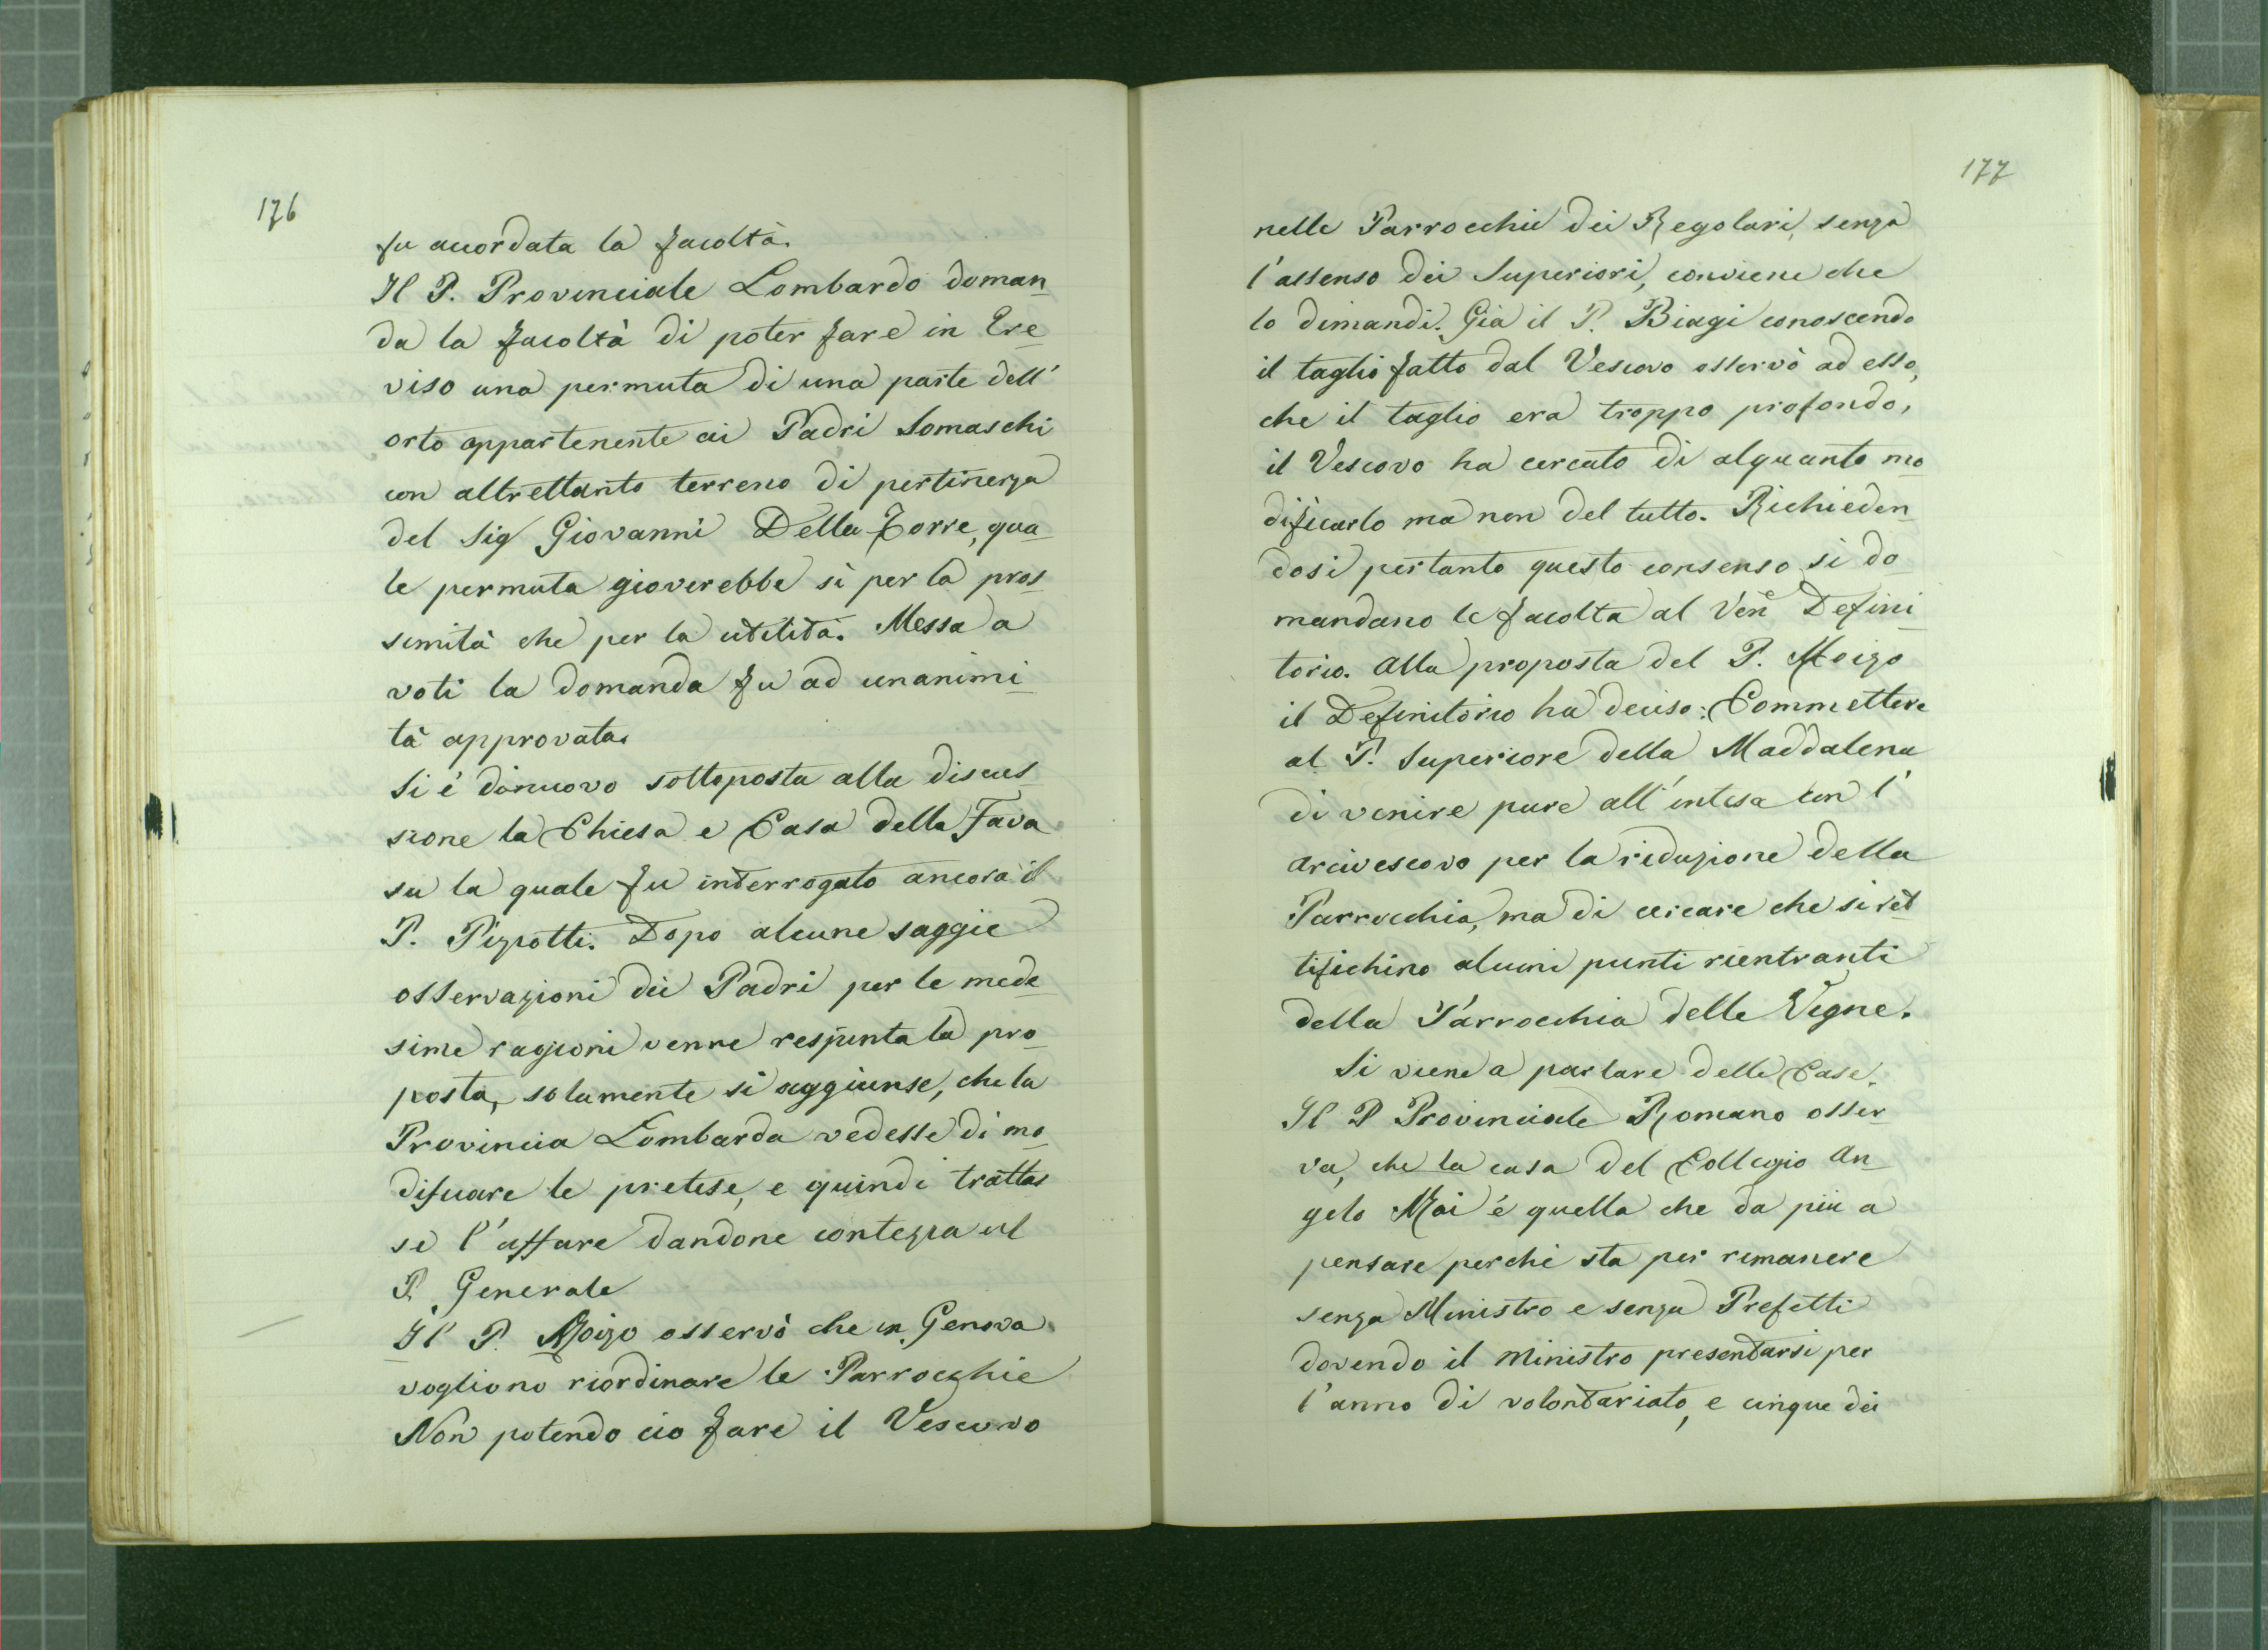 176
fu accordata la facoltà.
Il P. Provinciale Lombardo doman
da la facoltà di poter fare in Tre
viso una permuta di una parte dell'
orto appartenente ai Padri Somaschi
con altrettanto terreno di pertinenza
del Sig Giovanni Della Torre, qua
le permuta gioverebbe sì per la pros
simità che per la utilità. Messa a
voti la domanda fu ad unanimi
tà approvata.
Si è dinuovo sottoposta alla discus
sione la Chiesa e Casa della Fava
su la quale fu interrogato ancora il
P. Pizzotti. Dopo alcune saggie
osservazioni dei Padri per le mede
sime ragioni venne respinta la pro
posta, solamente si aggiunse, che la
Provincia Lombarda vedesse di mo
dificare le pretese, e quindi trattas
se l'affare dandone contezza al
P. Generale
Il P. Moizo osservò che in Genova
vogliono riordinare le Parrocchie
Non potendo cio fare il Vescovo
177
nelle Parrocchie dei Regolari, senza
l'assenso dei Superiori, conviene che
lo dimandi. Già il P. Biagi conoscendo
il taglio fatto dal Vescovo osservò ad esso,
che il taglio era troppo profondo,
il Vescovo ha cercato di alquanto mo
dificarlo ma non del tutto. Richieden
dosi pertanto questo consenso si do
mandano le facolta al Ven.e Defini
torio. Alla proposta del P. Moizo
il Definitorio ha deciso: Commettere
al P. Superiore della Maddalena
di venire pure all'intesa con l'
Arcivescovo per la riduzione della
Parrocchia, ma di cercare che si ret
tifichino alcuni punti rientranti
della Parrocchia delle Vigne.
Si viene a parlare delle Case.
Il P Provinciale Romano osser
va, che la casa del Collegio An
gelo Mai è quella che da più a
pensare perchè sta per rimanere
senza Ministro e senza Prefetti
dovendo il Ministro presentarsi per
l'anno di volontariato, e cinque dei